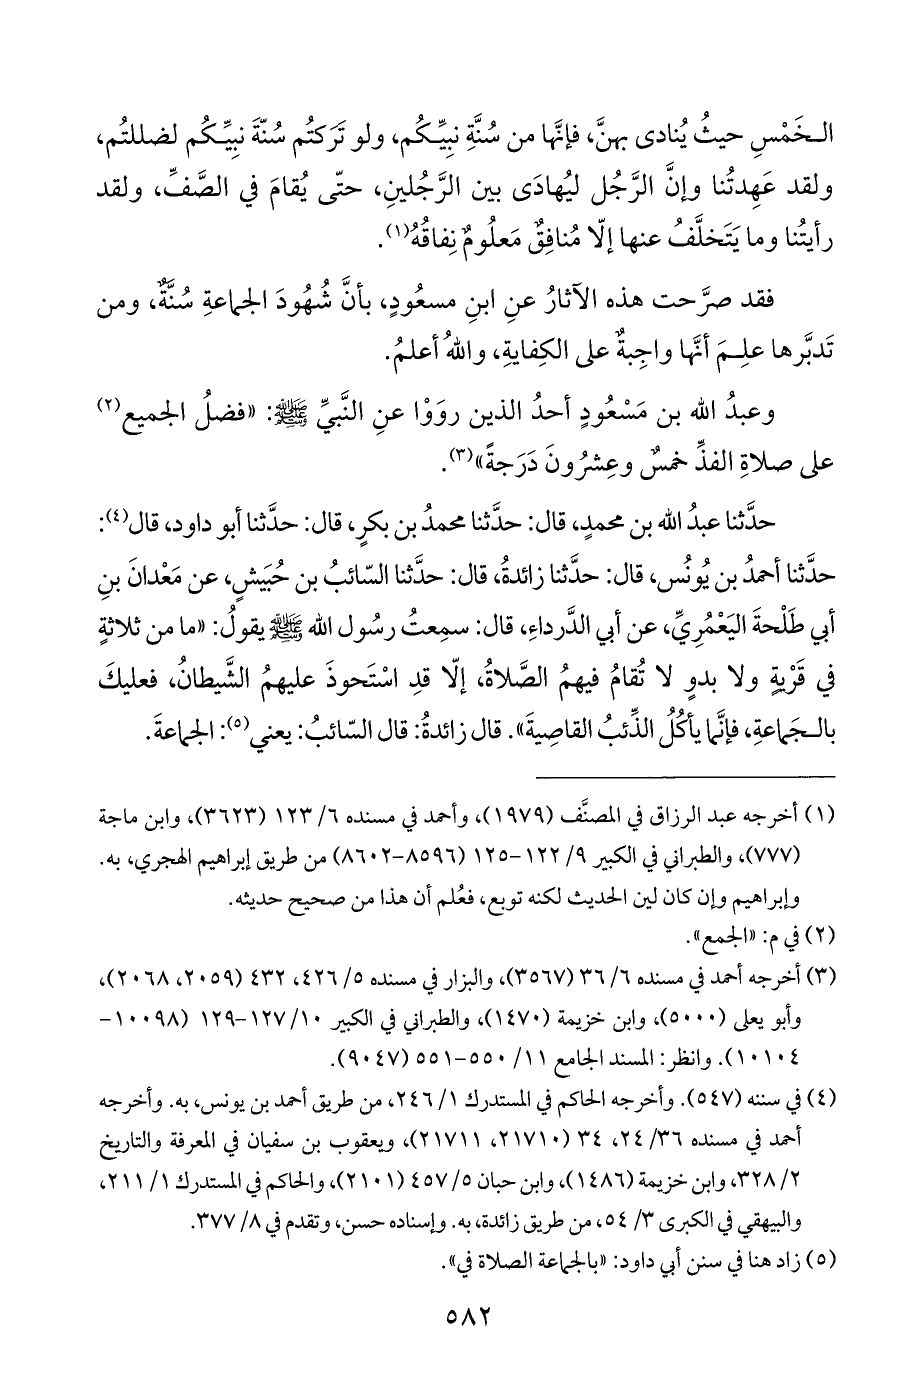 الـخَمْسِ حيثُ يُنادى بهنَّ، فإنَّها من سُنَّةِ نبِيِّـكُم، ولو تَرَكتُم سُنّةَ نبِيِّـكُم لضللتُم،
ولقد عَهِدتُنا وإنَّ الرَّجُل ليُهادَى بين الرَّجُلينِ، حتّى يُقامَ في الصَّفِّ، ولقد
رأيتُنا وما يَتَخلَّفُ عنها إلّا مُنافِقٌ مَعلُومٌ نِفاقُهُ(١).
فقد صرَّحت هذه الآثارُ عنِ ابنِ مسعُودٍ، بأنَّ شُهُودَ الجماعةِ سُنَّةٌ، ومن
تَدبَّرها علِـمَ أنَّها واجِبةٌ على الكِفايةِ، واللهُ أعلمُ.
وعبدُ الله بن مَسْعُودٍ أحدُ الذين روَوْا عنِ النَّبيِّ ﷺ: «فضلُ الجميع(٢)
على صلاةِ الفذِّ خمسٌ وعِشرُونَ دَرَجةً»(٣).
حدَّثنا عبدُ الله بن محمدٍ، قال: حدَّثنا محمدُ بن بكرٍ، قال: حدَّثنا أبو داود، قال(٤):
حدَّثنا أحمدُ بن يُونُس، قال: حدَّثنا زائدةُ، قال: حدَّثنا السّائبُ بن حُبَيشٍ، عن مَعْدانَ بنِ
أبي طَلْحةَ اليَعْمُريِّ، عن أبي الدَّرداءِ، قال: سمِعتُ رسُول الله ﷺ يقولُ: «ما من ثلاثةٍ
في قَرْيةٍ ولا بدوٍ لا تُقامُ فيهمُ الصَّلاةُ، إلّا قدِ اسْتَحوذَ عليهمُ الشَّيطانُ، فعليكَ
بالـجَماعةِ، فإنَّما يأكُلُ الذِّئبُ القاصِيةَ». قال زائدةُ: قال السّائبُ: يعني(٥): الجماعةَ.
(١) أخرجه عبد الرزاق في المصنَّف (١٩٧٩)، وأحمد في مسنده ٦/ ١٢٣ (٣٦٢٣)، وابن ماجة
(٧٧٧)، والطبراني في الكبير ٩/ ١٢٢-١٢٥ (٨٥٩٦-٨٦٠٢) من طريق إبراهيم الهجري، به.
وإبراهيم وإن كان لين الحديث لكنه توبع، فعُلم أن هذا من صحيح حديثه.
(٢) في م: «الجمع».
(٣) أخرجه أحمد في مسنده ٦/ ٣٦ (٣٥٦٧)، والبزار في مسنده ٥/ ٤٢٦، ٤٣٢ (٢٠٥٩، ٢٠٦٨)،
وأبو يعلى (٥٠٠٠)، وابن خزيمة (١٤٧٠)، والطبراني في الكبير ١٠/ ١٢٧-١٢٩ (١٠٠٩٨-
١٠١٠٤). وانظر: المسند الجامع ١١/ ٥٥٠-٥٥١ (٩٠٤٧).
(٤) في سننه (٥٤٧). وأخرجه الحاكم في المستدرك ١/ ٢٤٦، من طريق أحمد بن يونس، به. وأخرجه
أحمد في مسنده ٣٦/ ٢٤، ٣٤ (٢١٧١٠، ٢١٧١١)، ويعقوب بن سفيان في المعرفة والتاريخ
٢/ ٣٢٨، وابن خزيمة (١٤٨٦)، وابن حبان ٥/ ٤٥٧ (٢١٠١)، والحاكم في المستدرك ١/ ٢١١،
والبيهقي في الكبرى ٣/ ٥٤، من طريق زائدة، به. وإسناده حسن، وتقدم في ٨/ ٣٧٧.
(٥) زاد هنا في سنن أبي داود: «بالجماعة الصلاة في».
٥٨٢